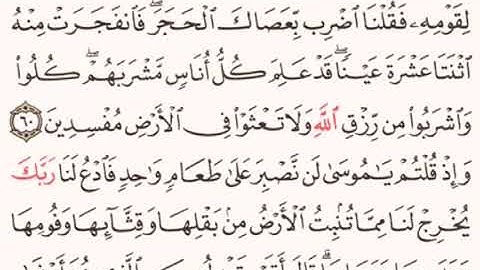 لِقَوْمِهِۦ فَقُلْنَا ٱضْرِب بِّعَصَاكَ ٱلْحَجَرَ ۖ فَٱنفَجَرَتْ مِنْهُ
ٱثْنَتَا عَشْرَةَ عَيْنًا ۖ قَدْ عَلِمَ كُلُّ أُنَاسٍ مَّشْرَبَهُمْ ۖ كُلُوا۟
وَٱشْرَبُوا۟ مِن رِّزْقِ ٱللَّهِ وَلَا تَعْثَوْا۟ فِى ٱلْأَرْضِ مُفْسِدِينَ ٦٠
وَإِذْ قُلْتُمْ يَـٰمُوسَىٰ لَن نَّصْبِرَ عَلَىٰ طَعَامٍ وَٰحِدٍ فَٱدْعُ لَنَا رَبَّكَ
يُخْرِجْ لَنَا مِمَّا تُنۢبِتُ ٱلْأَرْضُ مِنۢ بَقْلِهَا وَقِثَّآئِهَا وَفُومِهَا